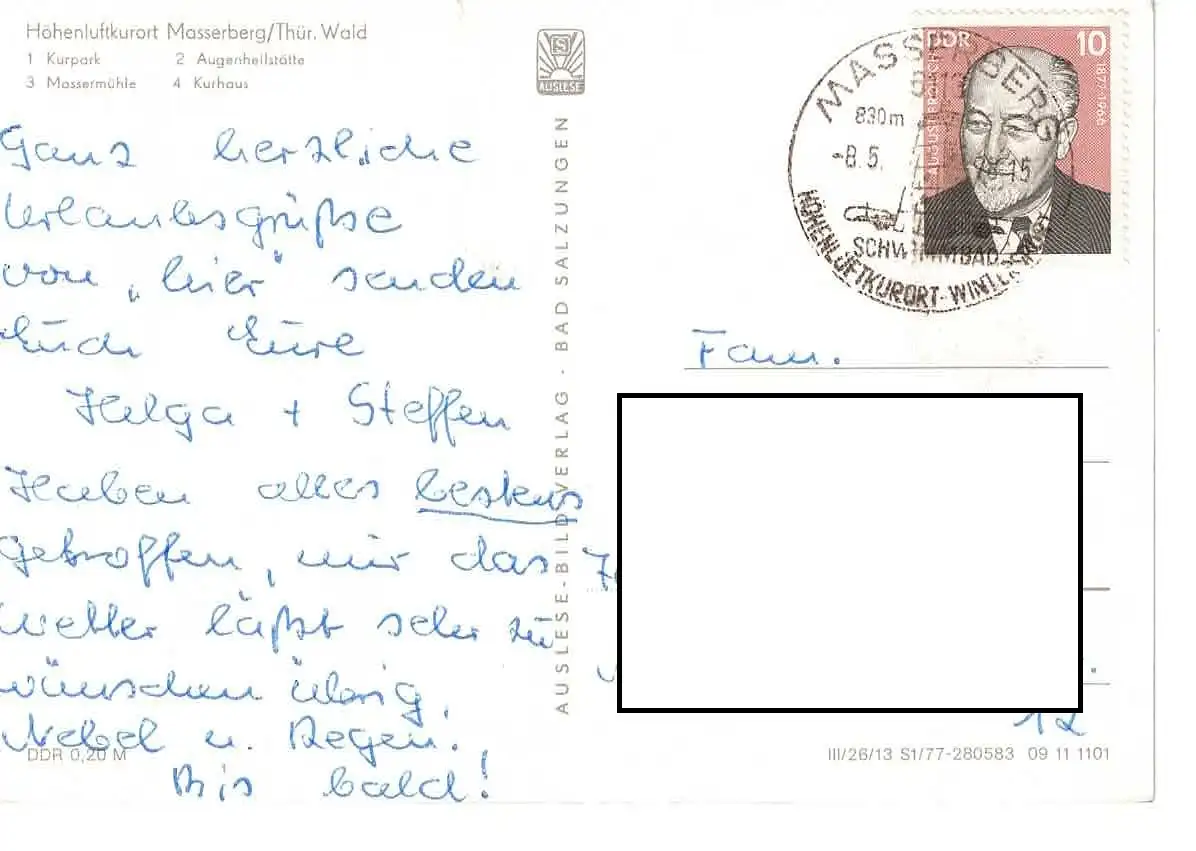 Höhenluftkurort Masserberg/Thür. Wald
1 Kurpark 2 Augenheilstätte
3 Massermühle 4 Kurhaus
Ganz herzliche
Urlaubsgrüße
von „hier" senden
Euch Eure
Helga + Steffen
Haben alles bestens
getroffen, nur das
wetter läßt sehr zu
wünschen übrig,
Nebel u. Regen.
Bis bald!
DDR 0,20 M
AUSLESE
AUSLESE-BILD-VERLAG · BAD SALZUNGEN
MASSERBERG
830m
-8.5.
SCHWIMMBAD
HÖHENLUFTKURORT-WINTERSPORT
DDR 10
AUGUST FRÖLICH
1877-1966
Fam.
12
III/26/13 S1/77-280583 09 11 1101